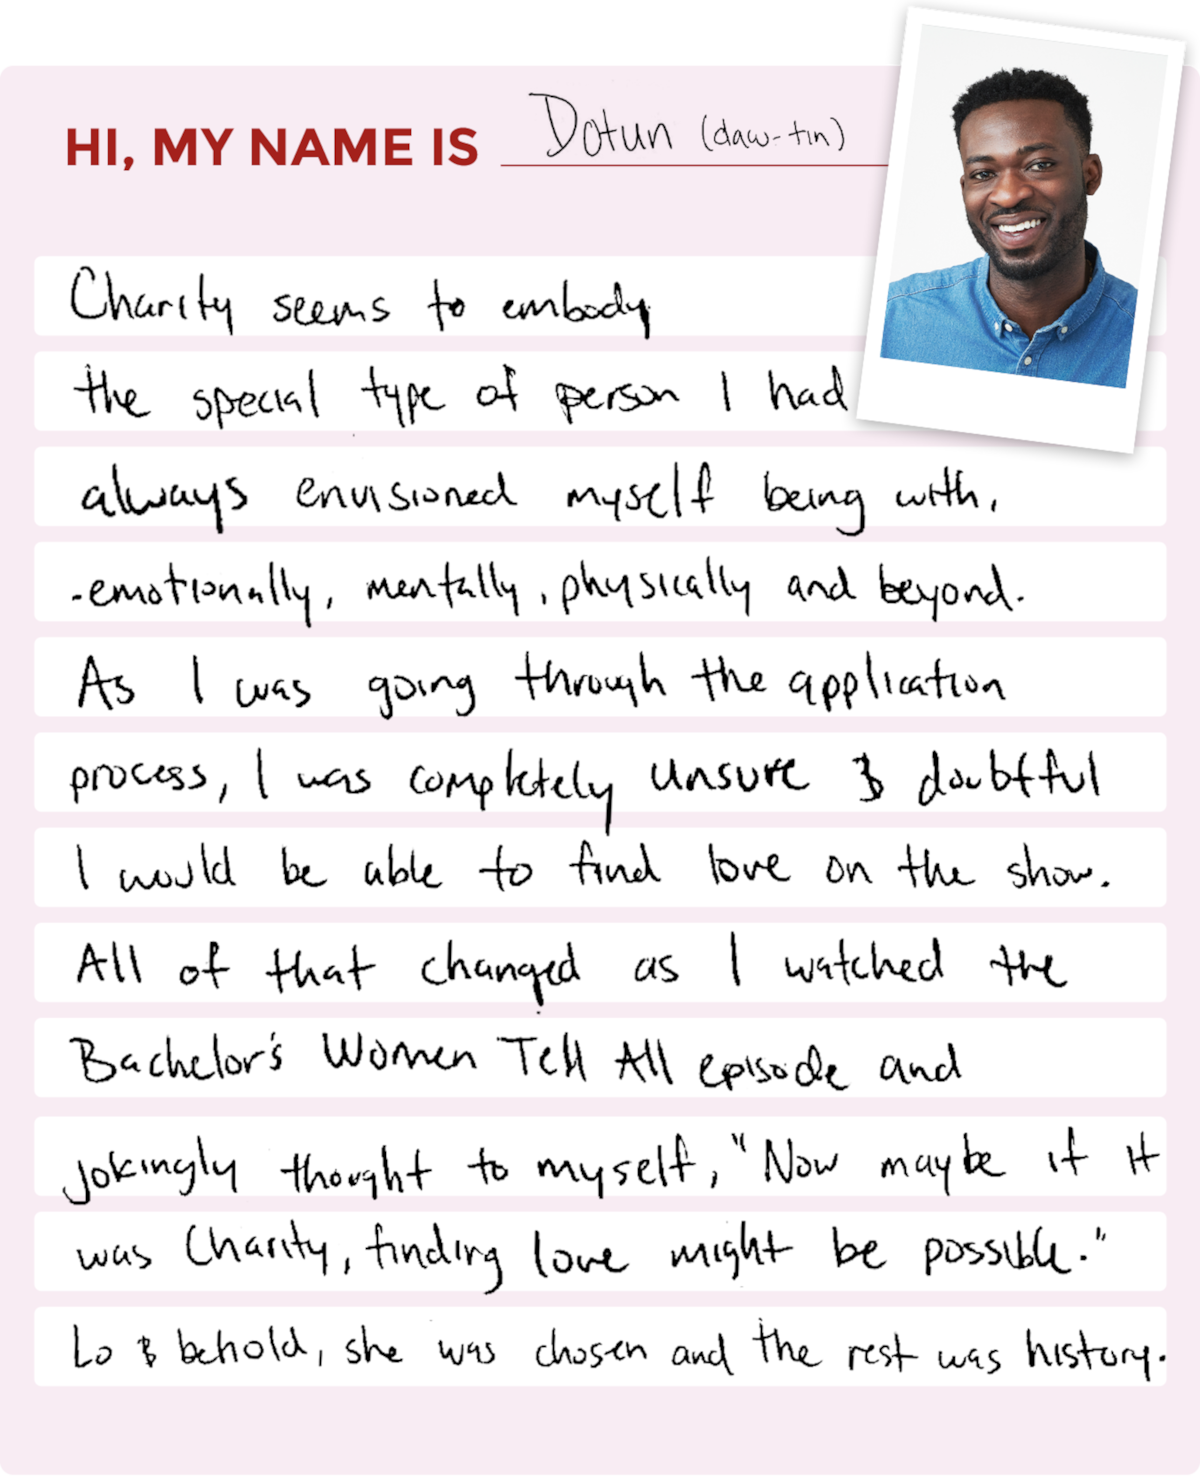 HI, MY NAME IS Dotun (daw-tin)
Charity seems to embody
the special type of person I had
always envisioned myself being with,
-emotionally, mentally, physically and beyond.
As I was going through the application
process, I was completely unsure & doubtful
I would be able to find love on the show.
All of that changed as I watched the
Bachelor's Women Tell All episode and
jokingly thought to myself, "Now maybe if it
was Charity, finding love might be possible."
Lo & behold, she was chosen and the rest was history.